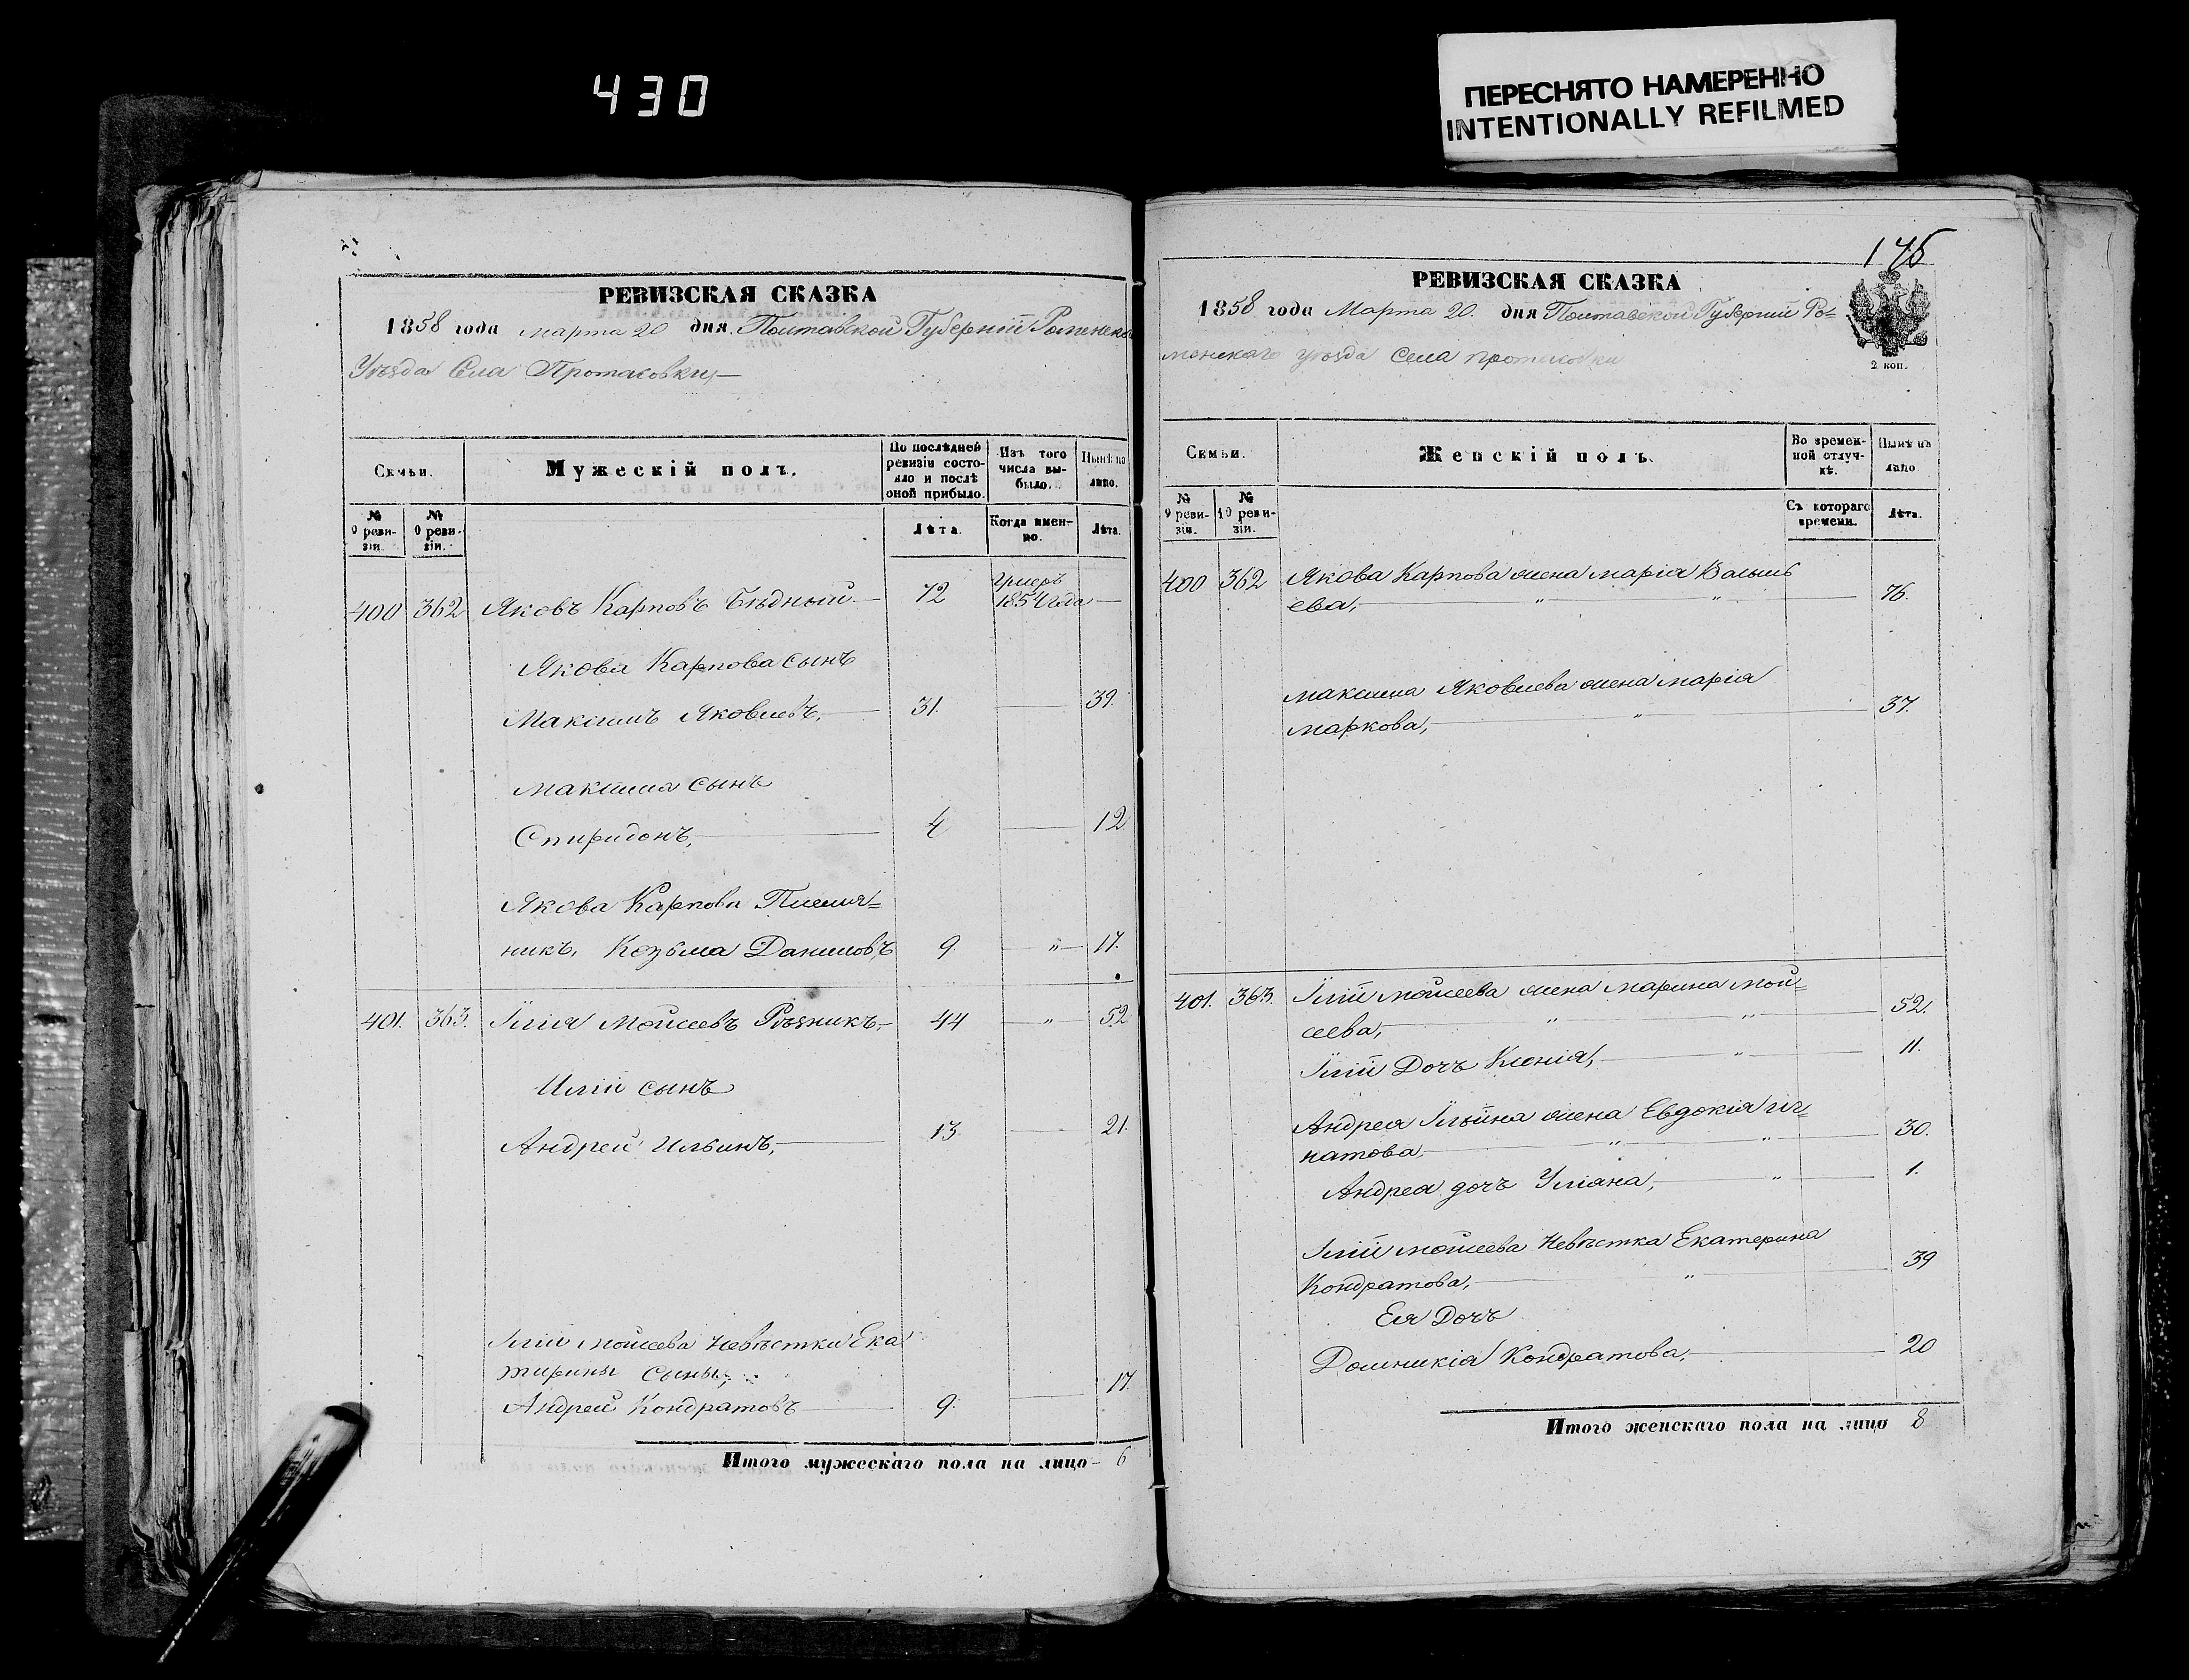 430
ПЕРЕСНЯТО НАМЕРЕННО
INTENTIONALLY REFILMED
РЕВИЗСКАЯ СКАЗКА
1858 года Марта 20 дня Полтавской Губерніи Роменскаго
Уѣзда Села Протасовки,
Семьи.
Мужескій полъ.
По послѣдней ревизіи состояло и послѣ оной прибыло.
Изъ того числа выбыло.
Нынѣ на лицо.
№ 9 ревизіи.
№ 10 ревизіи.
Лѣта.
Когда именно.
Лѣта.
400 362 Яковъ Карповъ Бѣдный 72 умеръ 1854 года
Якова Карпова сынъ
Максимъ Яковлевъ, 31. 39.
Максима сынъ
Спиридонъ, 4 12
Якова Карпова Племя=
никъ, Козьма Даниловъ 9. " 17.
401. 363. Илія Моисеевъ Рѣзникъ, 44 " 52
Иліи сынъ
Андрей Ильинъ, 13 21.
Иліи Моисеева Невѣстки Ека
тирины сыны;
Андрей Кондратовъ 9. 17.
Итого мужескаго пола на лицо 6
175
РЕВИЗСКАЯ СКАЗКА
1858 года Марта 20. дня Полтавской Губерніи Ро=
менскаго уѣзда Села Протасовки
2 коп.
Семьи.
Женскій полъ.
Во временной отлучкѣ.
Нынѣ на лицо
№ 9 ревизіи.
№ 10 ревизіи.
Съ котораго времени.
Лѣта.
400 362 Якова Карпова жена Марія
ева, " " 76.
Максима Яковлева жена Марія
Маркова, " 37.
401. 363. Иліи Моисеева жена Марина Мои=
сеева, " " 52.
Иліи Дочь Ксенія, " 11.
Андрея Ильина жена Евдокія Иг=
натова, " " 30.
Андрея дочь Уліана, " 1.
Иліи Моисеева Невѣстка Екатерина
Кондратова, " 39
Ея Дочь
Домникія Кондратова, 20
Итого женскаго пола на лицо 8